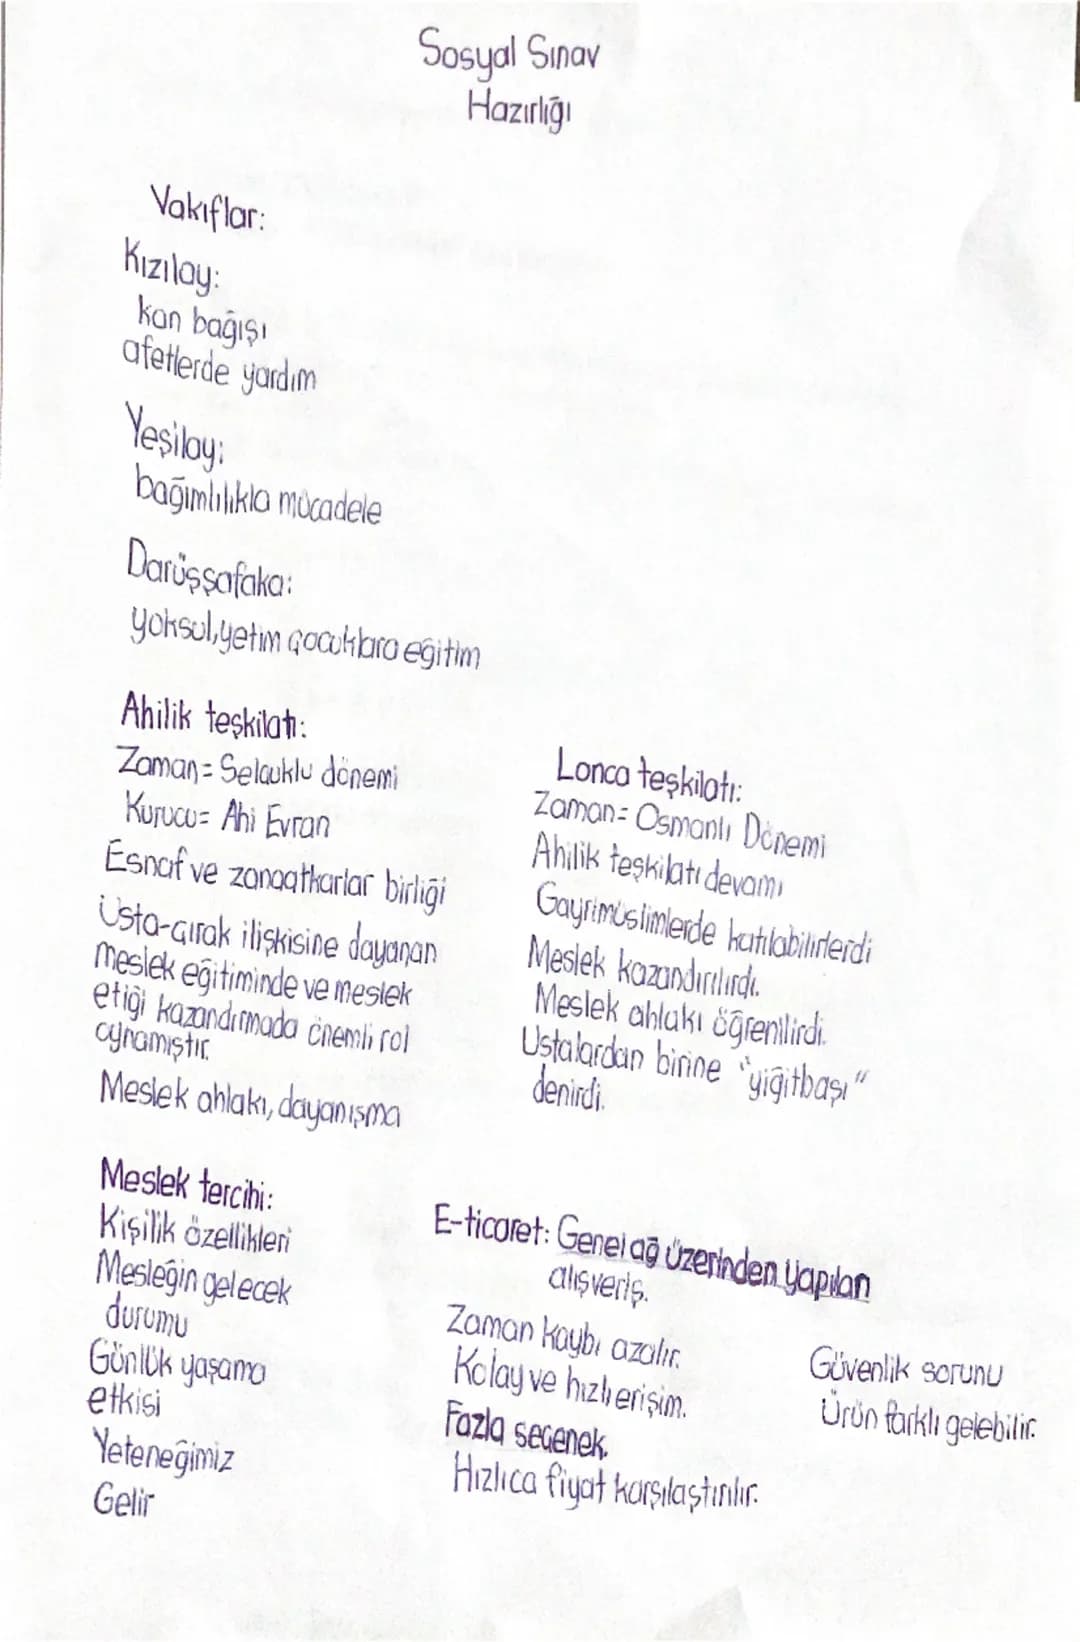 Sosyal Sınav
Hazırlığı
Vakıflar:
Kızılay:
kan bağışı
afetlerde yardım
Yeşilay:
bağımlılıkla mücadele
Darüşşafaka:
yoksul, yetim çocuklara eğitim
Ahilik teşkilatı:
Zaman= Selçuklu dönemi
Kurucu= Ahi Evran
Esnaf ve zanaatkarlar birliği
Usta-çırak ilişkisine dayanan
meslek eğitiminde ve meslek
etiği kazandırmada önemli rol
oynamıştır.
Meslek ahlakı, dayanışma
Lonca teşkilatı:
Zaman= Osmanlı Dönemi
Ahilik teşkilatı devamı
Gayrimüslimlerde katılabilirlerdi
Meslek kazandırılırdı.
Meslek ahlakı öğrenilirdi.
Ustalardan birine "yiğitbaşı"
denirdi.
Meslek tercihi:
Kişilik özellikleri
Mesleğin gelecek
durumu
Günlük yaşama
etkisi
Yeteneğimiz
Gelir
E-ticaret: Genel ağ üzerinden yapılan
alışveriş.
Zaman kaybı azalır.
Kolay ve hızlı erişim.
Fazla seçenek.
Hızlıca fiyat karşılaştırılır.
Güvenlik sorunu
Ürün farklı gelebilir.